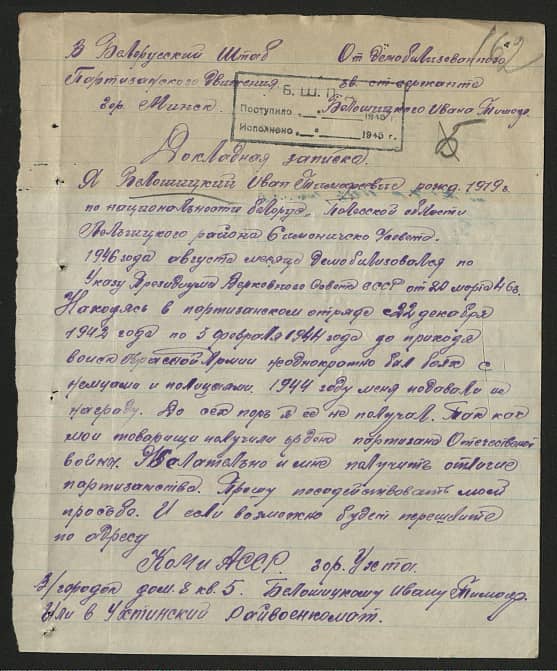 162
В Белорусский Штаб От демобилизованного
Партизанского движения. гв. ст. сержанта
гор. Минск. Белошицкого Ивана Тимоф.
Б. Ш. П. Д.
Поступило „ “ 1945 г.
Исполнено „ “ 1945 г.
Докладная записка.
Я Белошицкий Иван Тимофеевич рожд. 1919 г.
по национальности белорус, Полесской области
Ельницкого района Симоничско С/совета.
1946 года август месяца демобилизовался по
Указу Презвидиума Верховного Совета СССР от 20 марта 46 г.
Находясь в партизанском отряде с 22 декабря
1942 года по 5 февраля 1944 года до прихода
войск Красной Армии неоднократно был боях с
немцами и полицаями. 1944 году меня подавали на
награду. До сех пор я ее не получал. Так как
мои товарищи получили ордена партизана Отечественой
войны. Желательно и мне получить отличие
партизанства. Прошу посодействовать моей
просьбе. И если возможно будет перешлите
по адресу
Коми АССР. гор. Ухта.
В/городок дом. 8 кв. 5. Белошицкому Ивану Тимоф.
Или в Ухтинский Райвоенкомат.